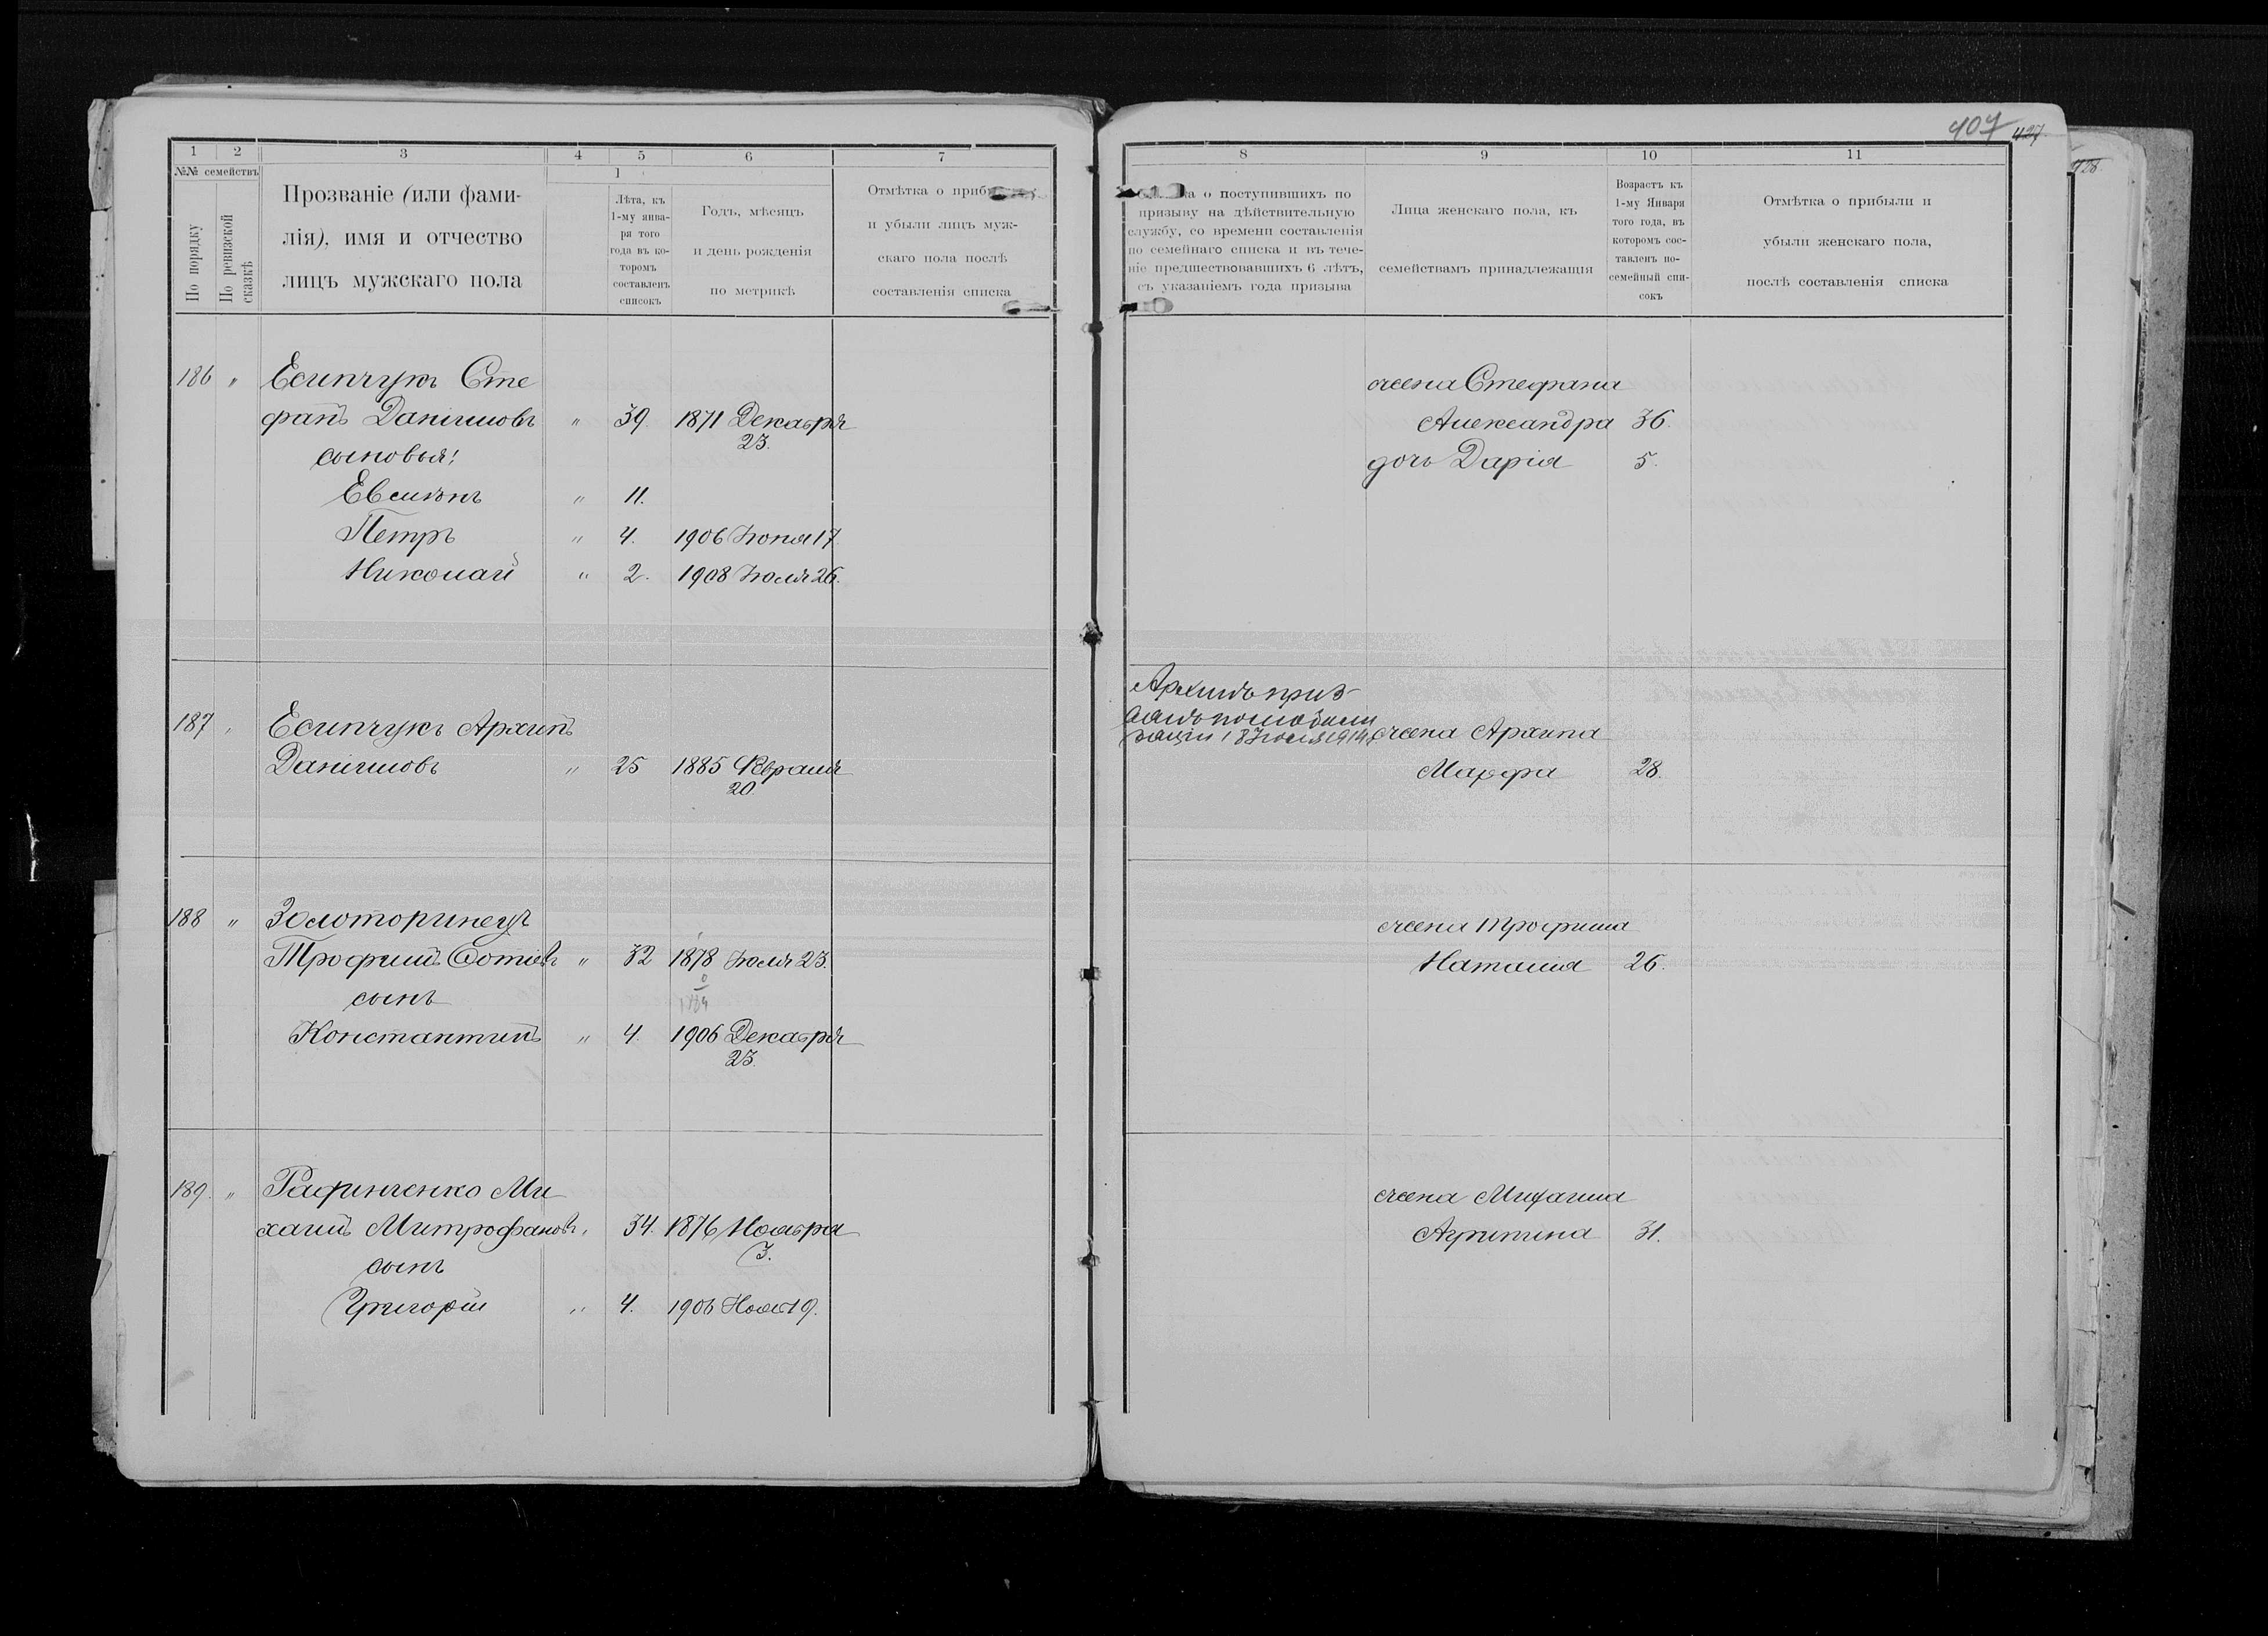 407 427
428
1 2 3 4 5 6 7
№№ семействъ
По порядку
По ревизской сказкѣ
Прозваніе (или фами-
лія), имя и отчество
лицъ мужскаго пола
1
Лѣта, къ
1-му янва-
ря того
года въ ко-
торомъ
составленъ
списокъ
Годъ, мѣсяцъ
и день рожденія
по метрикѣ
Отмѣтка о
и убыли лицъ муж-
скаго пола послѣ
составленія списка
186 " Есипчукъ Сте
фанъ Даніиловъ " 39. 1871 Декабря
23.
сыновья:
Евсикъ " 11.
Петръ " 4. 1906 Іюня 17
Николай " 2. 1908 Іюля 26.
187 " Есипчукъ Архипъ
Даніиловъ " 25 1885 Февраля
20.
188 " Золоторинецъ
Трофимъ Фотіевъ " 32 1878 Іюля 23.
1884
сынъ
Константинъ " 4. 1906 Декабря
23.
189. " Рафинченко Ми
хаилъ Митрофановъ " 34. 1876 Ноября
3.
сынъ
Григорій " 4. 1906 Нояб 19.
8 9 10 11
о поступившихъ по
призыву на дѣйствительную
службу, со времени составленія
по семейнаго списка и въ тече-
ніе предшествовавшихъ 6 лѣтъ,
съ указаніемъ года призыва
Лица женскаго пола, къ
семействамъ принадлежащія
Возрастъ къ
1-му Января
того года, въ
которомъ сос-
тавленъ по-
семейный спи-
сокъ
Отмѣтка о прибыли и
убыли женскаго пола,
послѣ составленія списка
жена Стефана
Александра 36.
дочь Дарія 5.
Архипъ приз-
ванъ по мобили
заціи 18 Іюля 1914 г
жена Архипа
Марфа 28.
жена Трофима
Наталія 26.
жена Михаила
Агрипина 31.